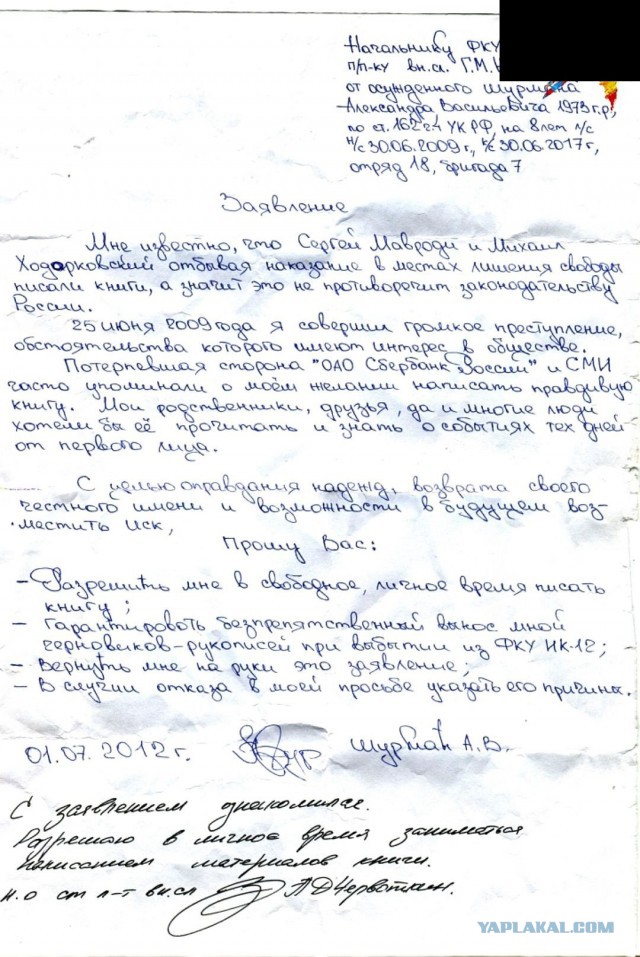 Начальнику ФКУ
п/п-ку вн.сл. Г.М.
от осужденного Шурмана
Александра Васильевича 1973 г.р.,
по ст. 162 ч.4 УК РФ, на 8 лет л/с
н/с 30.06.2009 г., к/с 30.06.2017 г.,
отряд 18, бригада 7
Заявление
Мне известно, что Сергей Мавроди и Михаил
Ходорковский отбывая наказание в местах лишения свободы
писали книги, а значит это не противоречит законодательству
России.
25 июня 2009 года я совершил громкое преступление,
обстоятельства которого имеют интерес в обществе.
Потерпевшая сторона "ОАО Сбербанк России" и СМИ
часто упоминали о моём желании написать правдивую
книгу. Мои родственники, друзья, да и многие люди
хотели бы её прочитать и знать о событиях тех дней
от первого лица.
С целью оправдания надежд, возврата своего
честного имени и возможности в будущем воз-
местить иск,
Прошу Вас:
- Разрешить мне в свободное, личное время писать
книгу;
- Гарантировать безпрепятственный вынос мной
черновиков-рукописей при выбытии из ФКУ ИК-12;
- Вернуть мне на руки это заявление;
- В случии отказа в моей просьбе указать его причины.
01.07.2012 г. Шурман А.В.
С заявлением ознакомился.
Разрешаю в личное время заниматься
написанием материалов книги.
н.о ст л-т вн.сл
YAPLAKAL.COM